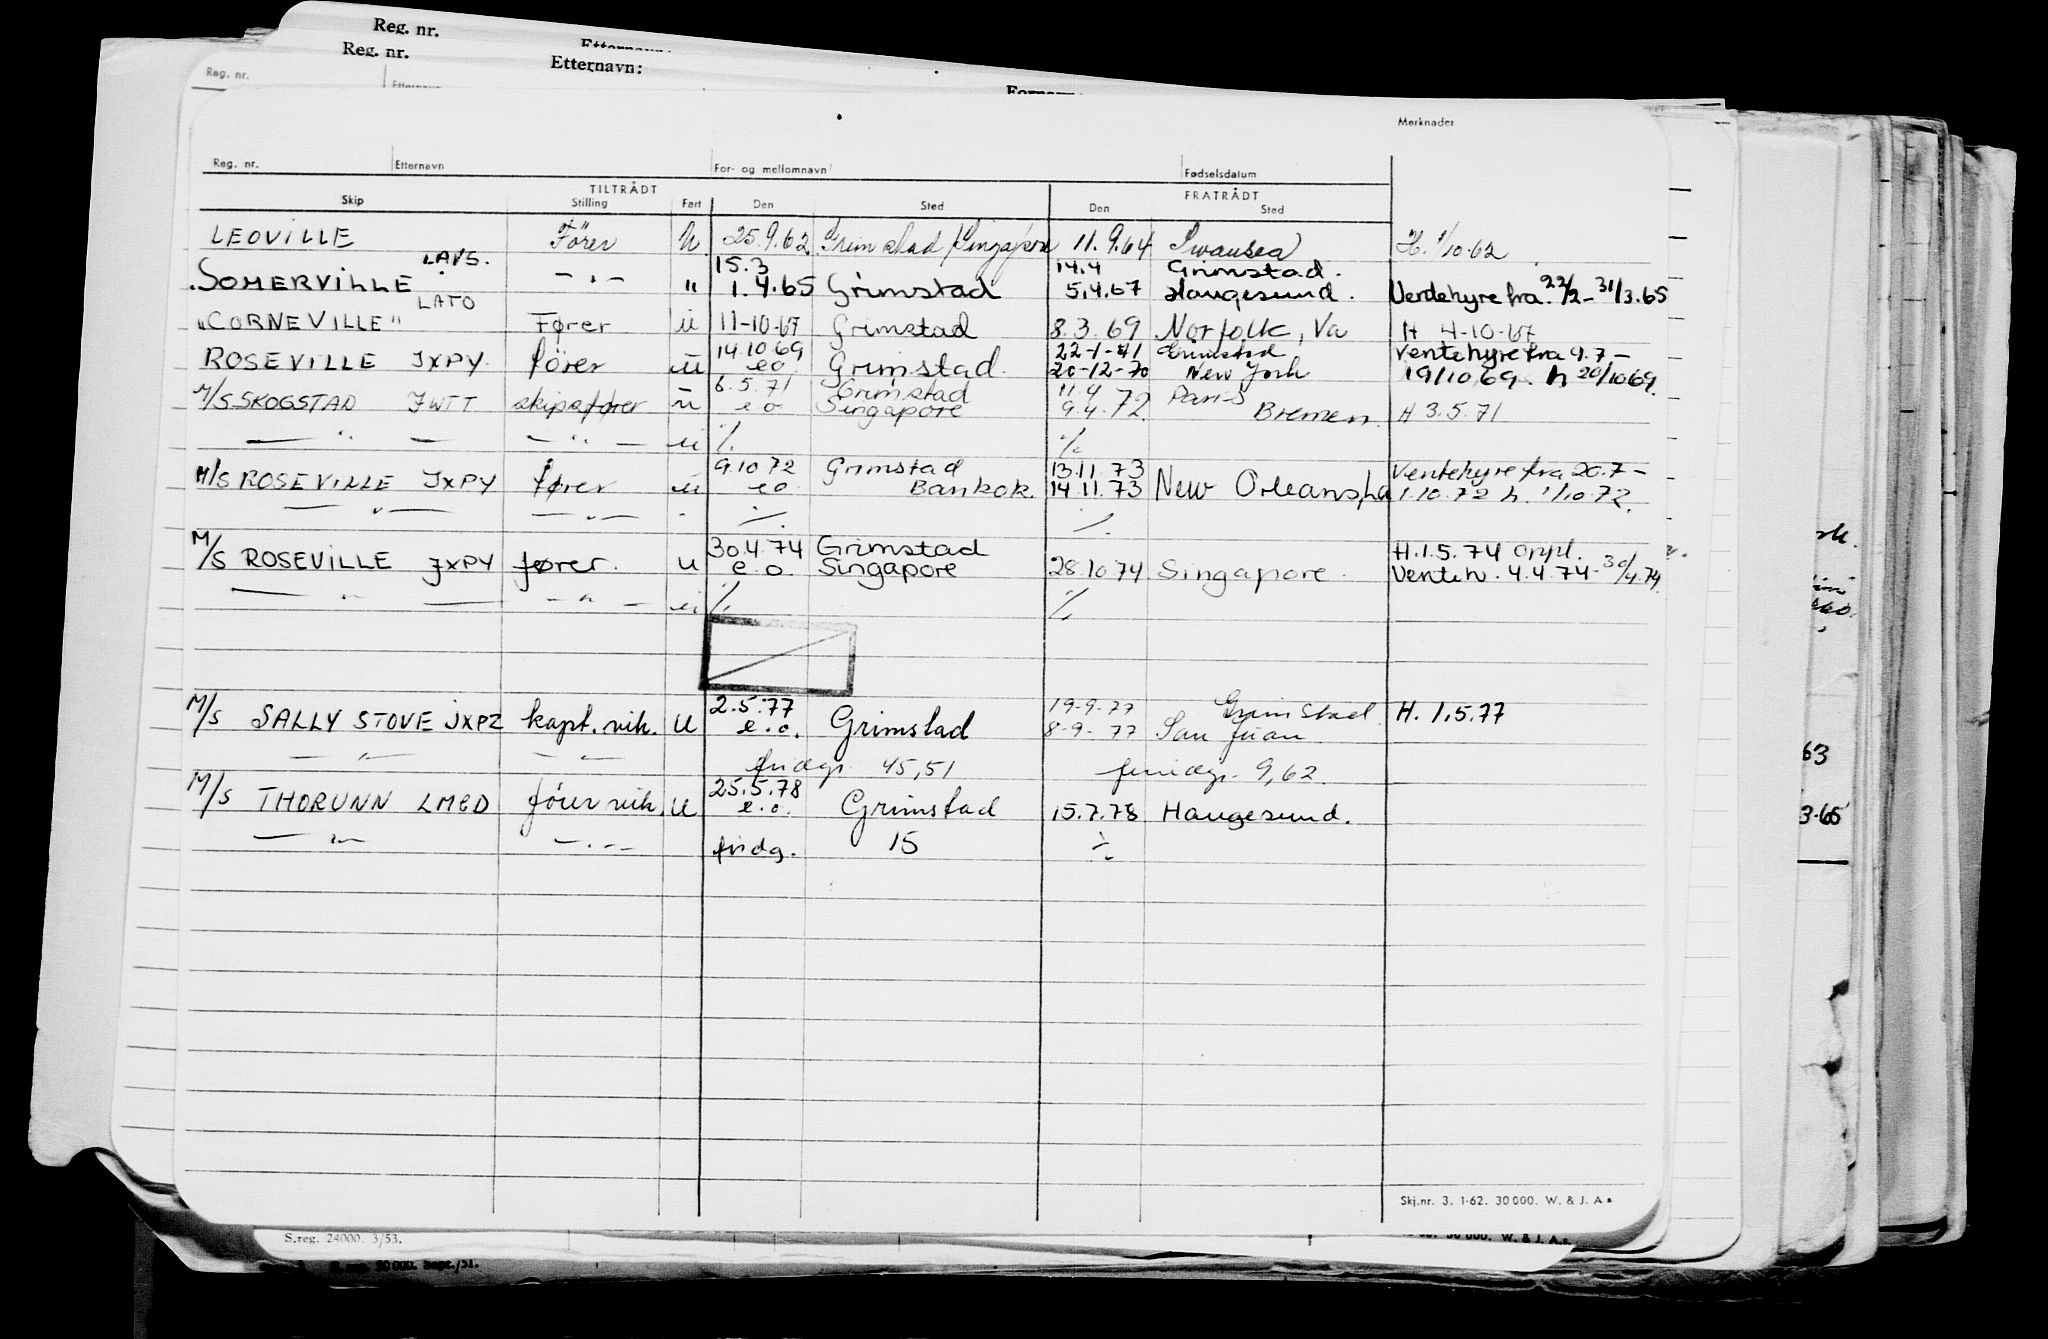 Reg. nr.
Reg. nr.
Etternavn:
Reg. nr.
Merknader
Reg. nr. Etternavn For- og mellomnavn Fødselsdatum
TILTRÅDT FRATRÅDT
Skip Stilling Fart Den Sted Den Sted
LEOVILLE Förer U 25.9.62 Grimstad/Singapore 11.9.64 Swansea H. 1/10-62
LAVS. 15.3 14.4 Grimstad.
SOMERVILLE —"— " 1.4.65 Grimstad 5.4.67 Haugesund. Ventehyre fra 22/2-31/3.65
LATO
"CORNEVILLE" Fører u 11-10-67 Grimstad 8.3.69 Norfolk, Va H 4-10-67
14.10 69 22-1-71 Grimstad Ventehyre fra 9.7 –
ROSEVILLE JXPY. förer u eo Grimstad. 20-12-70 New York 19/10 69. h 20/10 69.
6.5.71 Grimstad 11.4 Paris
M/S SKOGSTAD JWTT skipsfører u e o Singapore 9.4.72 Bremen H 3.5.71
— " — — " — u % %
9.10 72 Grimstad 13.11.73 Ventehyre fra 20.7 –
M/S ROSEVILLE JXPY fører u eo Bankok. 14.11.73 New Orleans, La 1.10.72 h. 1/10.72.
— " — — " — - % %
30.4.74 Grimstad H.1.5.74 oppl.
M/S ROSEVILLE JXPY fører. u e.o Singapore 28.10 74 Singapore. Venteh. 4.4.74-30/4.74
— " — — " — u % %
M/S SALLY STOVE JXPZ kapt. vik. U 2.5.77 19-9-77 Grimstad H. 1.5.77
e.o. Grimstad 8-9-77 San Juan
— " — — " — fridgr. 45,51 feridgr. 9,62
M/S THORUNN LMED förer vik. U 25.5.78
e.o. Grimstad 15.7.78 Haugesund.
— " — — " — fridg. 15 %
63
3-65
Skj.nr. 3. 1-62. 30 000. W. & J. A s
S.reg. 24000. 3/53.
30 000. W. & J. A.s.
30 000. Sept./51.